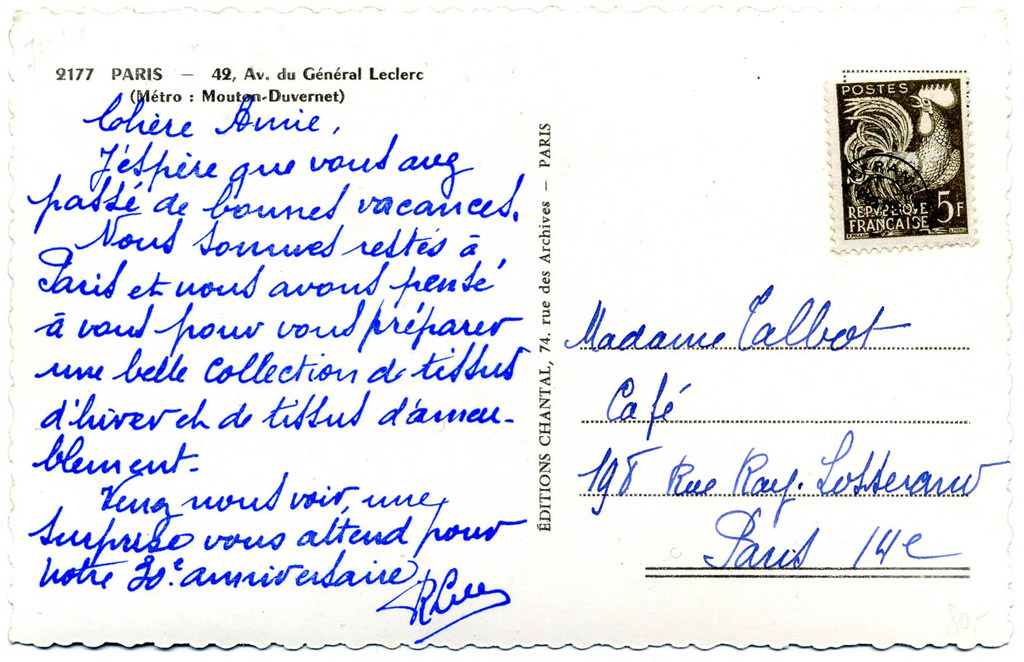 2177 PARIS — 42, Av. du Général Leclerc
(Métro : Mouton-Duvernet)
Chère Amie,
J'espère que vous avez
passé de bonnes vacances.
Nous sommes restés à
Paris et nous avons pensé
à vous pour vous préparer
une belle collection de tissus
d'hiver et de tissus d'ameu-
blement.
Venez nous voir, une
surprise vous attend pour
notre 30e anniversaire
ÉDITIONS CHANTAL, 74, rue des Archives — PARIS
POSTES
FRANC
REPVBLIQVE
FRANÇAISE
5F
Madame Talbot
Café
198 Rue Ray. Losserand
Paris 14e